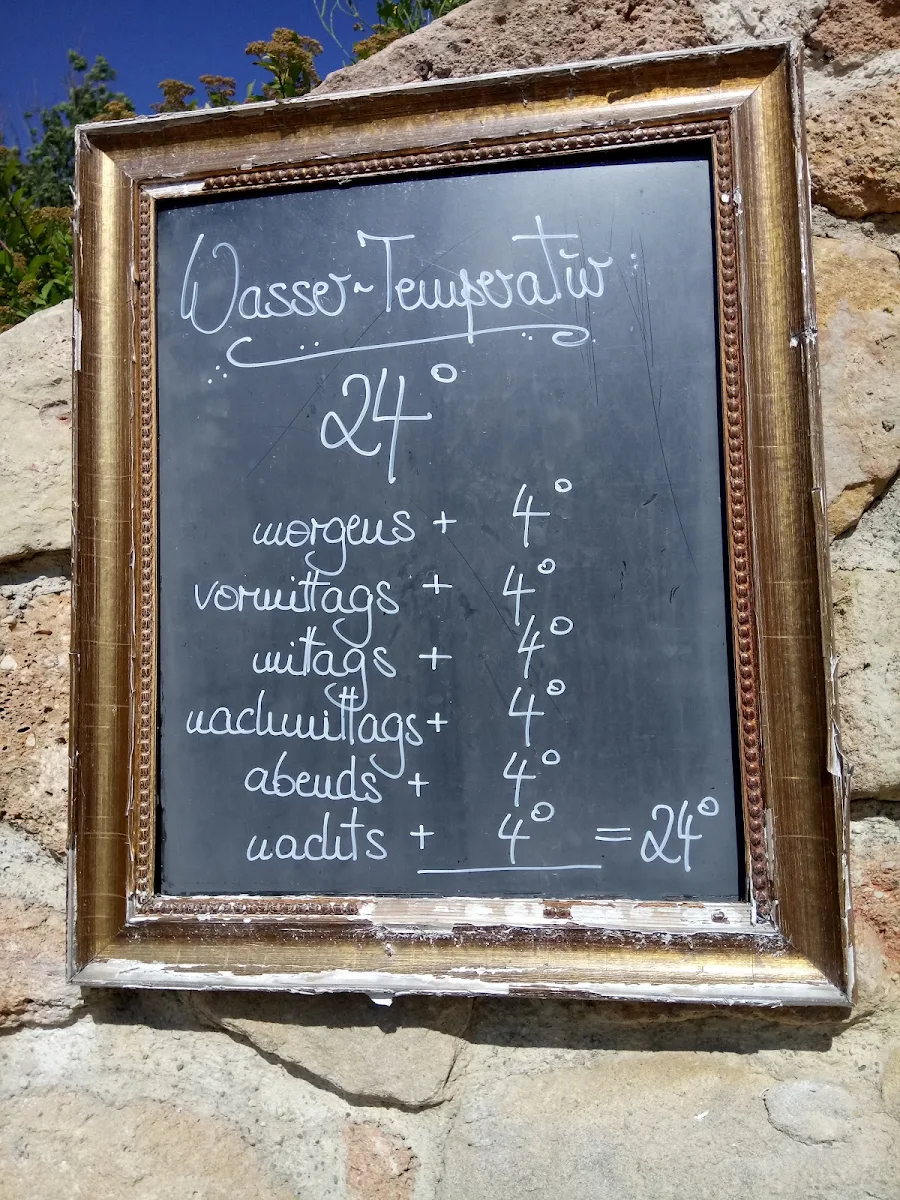 Wasser~Temperatur:
24°
morgens + 4°
vormittags + 4°
mittags + 4°
nachmittags + 4°
abends + 4°
nachts + 4° = 24°